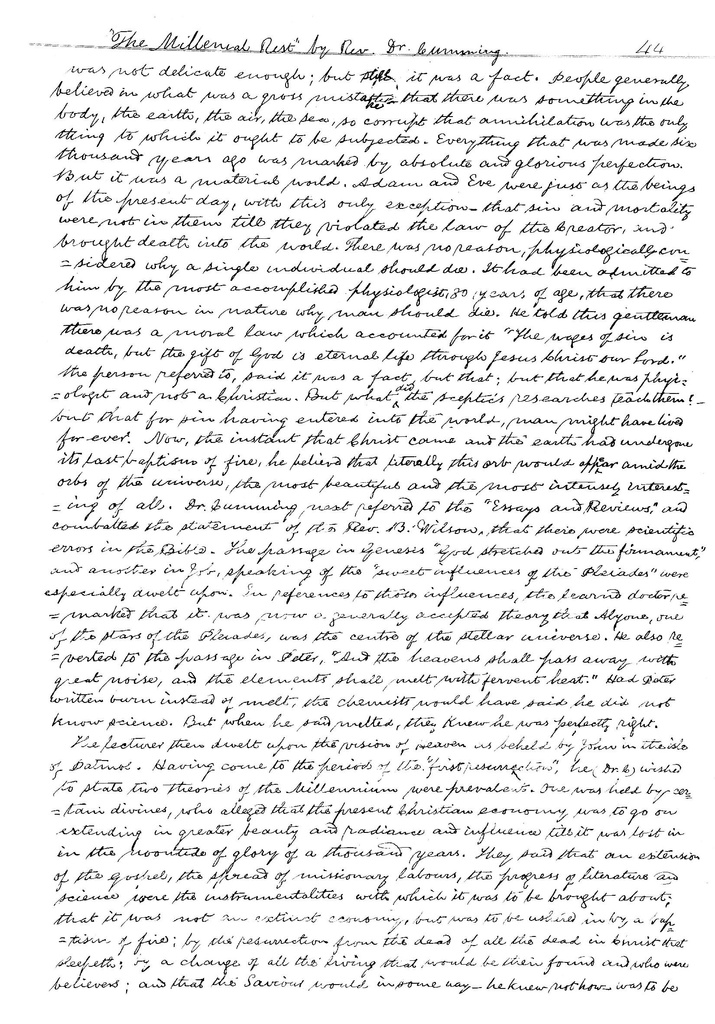 "The Millenial Rest" by Rev. Dr. Cumming. 44
was not delicate enough; but still it was a fact. People generally
believed in what was a gross mistake that there was something in the
body, the earth, the air, the sea, so corrupt that annihilation was the only
thing to which it ought to be subjected. Everything that was made six
thousand years ago was marked by absolute and glorious perfection.
But it was a material world. Adam and Eve were just as the beings
of the present day, with this only exception - that sin and mortality
were not in them till they violated the law of the Creator, and
brought death into the world. There was no reason, physiologically con-
=sidered why a single individual should die. It had been admitted to
him by the most accomplished physiologist, 80 years of age, that there
was no reason in nature why man should die. He told this gentleman
there was a moral law which accounted for it "The wages of sin is
death, but the gift of God is eternal life through Jesus Christ our Lord."
The person referred to, said it was a fact, but that; but that he was physi-
=ologist and not a Christian. But what did the sceptics researches teach them! -
but that for sin having entered into the world, man might have lived
for ever. Now, the instant that Christ came and the earth had undergone
its last baptism of fire, he believe that literally this orb would appear amid the
orbs of the universe, the most beautiful and the most intensely interest-
=ing of all. Dr. Cumming next referred to the "Essays and Reviews," and
combatted the statement of the Rev. B. Wilson, that there were scientific
errors in the Bible. The passage in Genesis "God stretched out the firmament,"
and another in Job, speaking of the "sweet influences of the Pleiades" were
especially dwelt upon. In references to those influences, the learned doctor re-
=marked that it was now a generally accepted theory that Alyone, one
of the stars of the Pleiades, was the centre of the stellar universe. He also re-
=verted to the passage in Peter, "And the heavens shall pass away with
great noise, and the elements shall melt with fervent heat." Had Peter
written burn instead of melt, the chemists would have said he did not
know science. But when he said melted, they knew he was perfectly right.
The lecturer then dwelt upon the vision of heaven as beheld by John in the isle
of Patmos. Having come to the period of the "first resurrection", he (Dr. C) wished
to state two theories of the Millennium were prevalent. One was held by cer-
=tain divines, who alleged that the present Christian economy was to go on
extending in greater beauty and radiance and influence till it was lost in
in the noontide of glory of a thousand years. They said that an extension
of the gospel, the spread of missionary labours, the progress of literature and
science were the instrumentalities with which it was to be brought about;
that it was not an extinct economy, but was to be ushered in by a bap-
=tism of fire; by the resurrection from the dead of all the dead in Christ that
sleepeth; by a change of all the living that would be their found and who were
believers; and that the Saviour would in some way - he knew not how - was to be